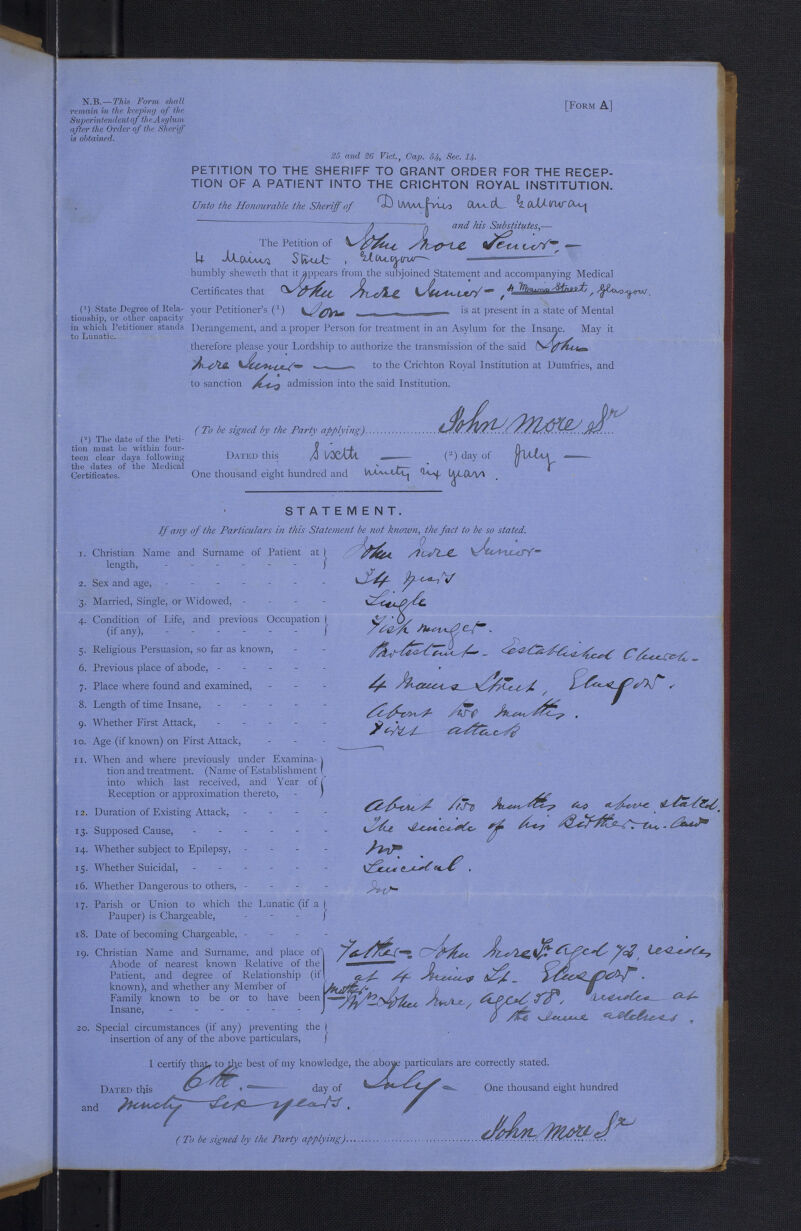 N.B.—This Form shall
remain in the keeping of the
Superintendent of the Asylum
after the Order of the Sheriff
is obtained.
[FORM A]
25 and 26 Vict., Cap. 54, Sec. 14.
PETITION TO THE SHERIFF TO GRANT ORDER FOR THE RECEP-
TION OF A PATIENT INTO THE CRICHTON ROYAL INSTITUTION.
Unto the Honourable the Sheriff of Dumfries and Galloway
and his Substitutes,—
The Petition of John More Senior.—
4 Mains Street, Glasgow
humbly sheweth that it appears from the subjoined Statement and accompanying Medical
Certificates that John More Junior—, 4 Mains Street, Glasgow.
(¹) State Degree of Rela-
tionship, or other capacity
in which Petitioner stands
to Lunatic.
your Petitioner's (¹) Son is at present in a state of Mental
Derangement, and a proper Person for treatment in an Asylum for the Insane. May it
therefore please your Lordship to authorize the transmission of the said John
More Junior— to the Crichton Royal Institution at Dumfries, and
to sanction his admission into the said Institution.
(To be signed by the Party applying) John More Sr
(²) The date of the Peti-
tion must be within four-
teen clear days following
the dates of the Medical
Certificates.
DATED this Sixth — (²) day of July —
One thousand eight hundred and ninety six years.
STATEMENT.
If any of the Particulars in this Statement be not known, the fact to be so stated.
1. Christian Name and Surname of Patient at
length, John More Junior—
2. Sex and age, 34 years
3. Married, Single, or Widowed, Single
4. Condition of Life, and previous Occupation
(if any), Fish monger.
5. Religious Persuasion, so far as known, Protestant - Established Church—
6. Previous place of abode,
7. Place where found and examined, 4 Mains Street, Glasgow.
8. Length of time Insane, About two months.
9. Whether First Attack, First attack
10. Age (if known) on First Attack,
11. When and where previously under Examina-
tion and treatment. (Name of Establishment
into which last received, and Year of
Reception or approximation thereto,
12. Duration of Existing Attack, About two months as above stated.
13. Supposed Cause, The suicide of his Brother-in-law
14. Whether subject to Epilepsy, No
15. Whether Suicidal, Suicidal.
16. Whether Dangerous to others, No
17. Parish or Union to which the Lunatic (if a
Pauper) is Chargeable,
18. Date of becoming Chargeable,
19. Christian Name and Surname, and place of
Abode of nearest known Relative of the
Patient, and degree of Relationship (if
known), and whether any Member of
Family known to be or to have been
Insane,
Father— John More Sr. aged 73, resides
at 4 Mains St. Glasgow.
Mother Mrs John More, aged 58, resides at
the same address.
20. Special circumstances (if any) preventing the
insertion of any of the above particulars,
I certify that, to the best of my knowledge, the above particulars are correctly stated.
DATED this 6th.— day of July — One thousand eight hundred
and ninety six years.
(To be signed by the Party applying) John More Sr